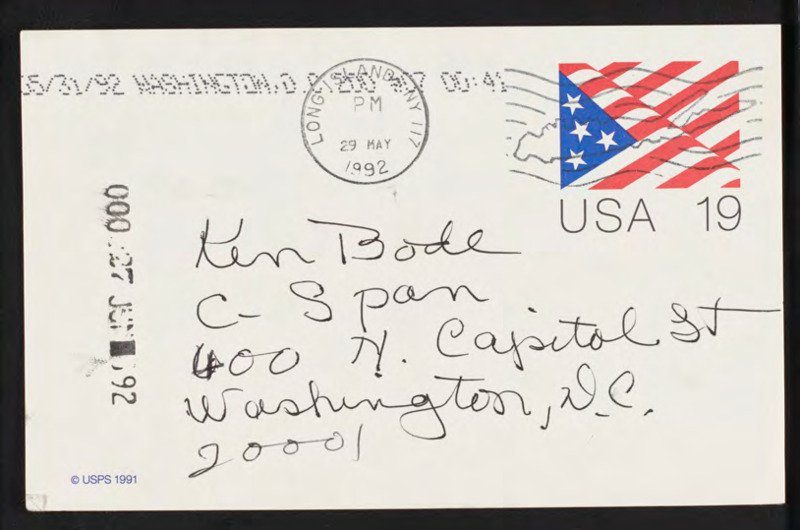 05/31/92 WASHINGTON, D.C. 200 #27 00:41
LONG ISLAND NY 117
PM
29 MAY
1992
USA 19
000 27 JUN 92
Ken Bode
C-Span
400 N. Capitol St
Washington, D.C.
20001
© USPS 1991